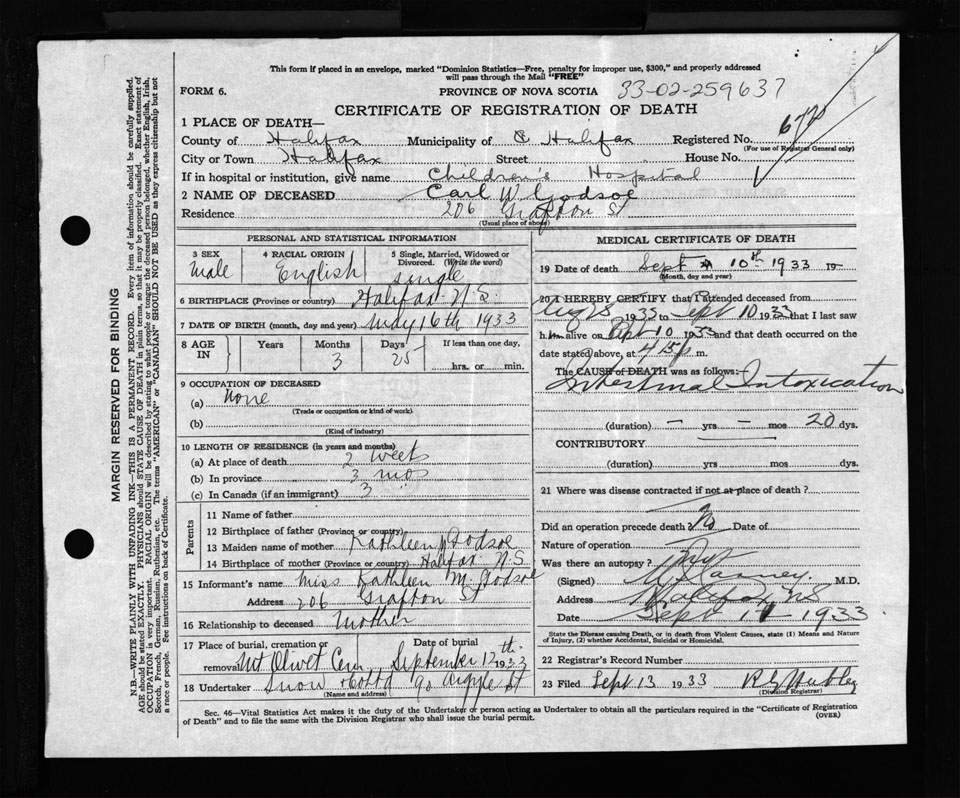 This form if placed in an envelope, marked "Dominion Statistics—Free, penalty for improper use, $300," and properly addressed
will pass through the Mail "FREE"
FORM 6. PROVINCE OF NOVA SCOTIA 33-02-259637
CERTIFICATE OF REGISTRATION OF DEATH
1 PLACE OF DEATH—
County of Halifax Municipality of Halifax Registered No. 672
(For use of Registrar General only)
City or Town Halifax Street House No.
If in hospital or institution, give name Children's Hospital
2 NAME OF DECEASED Carl W Godsoe
Residence 206 Grafton St
(Usual place of above)
PERSONAL AND STATISTICAL INFORMATION
3 SEX Male
4 RACIAL ORIGIN English
5 Single, Married, Widowed or Divorced. (Write the word) single
6 BIRTHPLACE (Province or country) Halifax N.S.
7 DATE OF BIRTH (month, day and year) May 16th 1933
8 AGE IN Years Months 3 Days 25 If less than one day, hrs. or min.
9 OCCUPATION OF DECEASED
(a) None
(Trade or occupation or kind of work)
(b)
(Kind of industry)
10 LENGTH OF RESIDENCE (in years and months)
(a) At place of death 2 week
(b) In province 3 mos
(c) In Canada (if an immigrant) 3 "
Parents
11 Name of father
12 Birthplace of father (Province or country)
13 Maiden name of mother Kathleen Godsoe
14 Birthplace of mother (Province or country) Halifax N.S.
15 Informant's name Miss Kathleen M. Godsoe
Address 206 Grafton St
16 Relationship to deceased Mother
17 Place of burial, cremation or removal Mt Olivet Cem Date of burial September 12th 1933
18 Undertaker Snow & Co Ltd 90 Argyle St
(Name and address)
MEDICAL CERTIFICATE OF DEATH
19 Date of death Sept 10th 1933 19
(Month, day and year)
20 I HEREBY CERTIFY that I attended deceased from
Aug 28 1933 to Sept 10 1933 that I last saw
h alive on Sept 10 1933 and that death occurred on the
date stated above, at 4 15 p m.
The CAUSE of DEATH was as follows:
Intestinal Intoxication
(duration) — yrs — mos 20 dys.
CONTRIBUTORY
(duration) yrs mos dys.
21 Where was disease contracted if not at place of death?
Did an operation precede death No Date of
Nature of operation
Was there an autopsy?
(Signed) M.D.
Address Halifax NS
Date Sept 11 - 1933
State the Disease causing Death, or in death from Violent Causes, state (1) Means and Nature
of Injury, (2) whether Accidental, Suicidal or Homicidal.
22 Registrar's Record Number
23 Filed Sept 13 1933
(Division Registrar)
Sec. 46—Vital Statistics Act makes it the duty of the Undertaker or person acting as Undertaker to obtain all the particulars required in the "Certificate of Registration
of Death" and to file the same with the Division Registrar who shall issue the burial permit. (OVER)
MARGIN RESERVED FOR BINDING
N.B.—WRITE PLAINLY WITH UNFADING INK—THIS IS A PERMANENT RECORD. Every item of information should be carefully supplied.
AGE should be stated EXACTLY. PHYSICIANS should STATE CAUSE OF DEATH in plain terms, so that it may be properly classified. Exact statement of
OCCUPATION is very important. RACIAL ORIGIN will be described by stating to what people or tongue the deceased person belonged, whether English, Irish,
Scotch, French, German, Russian, Ruthenian, etc. The terms "AMERICAN" or "CANADIAN" SHOULD NOT BE USED as they express citizenship but not
a race or people. See instructions on back of Certificate.